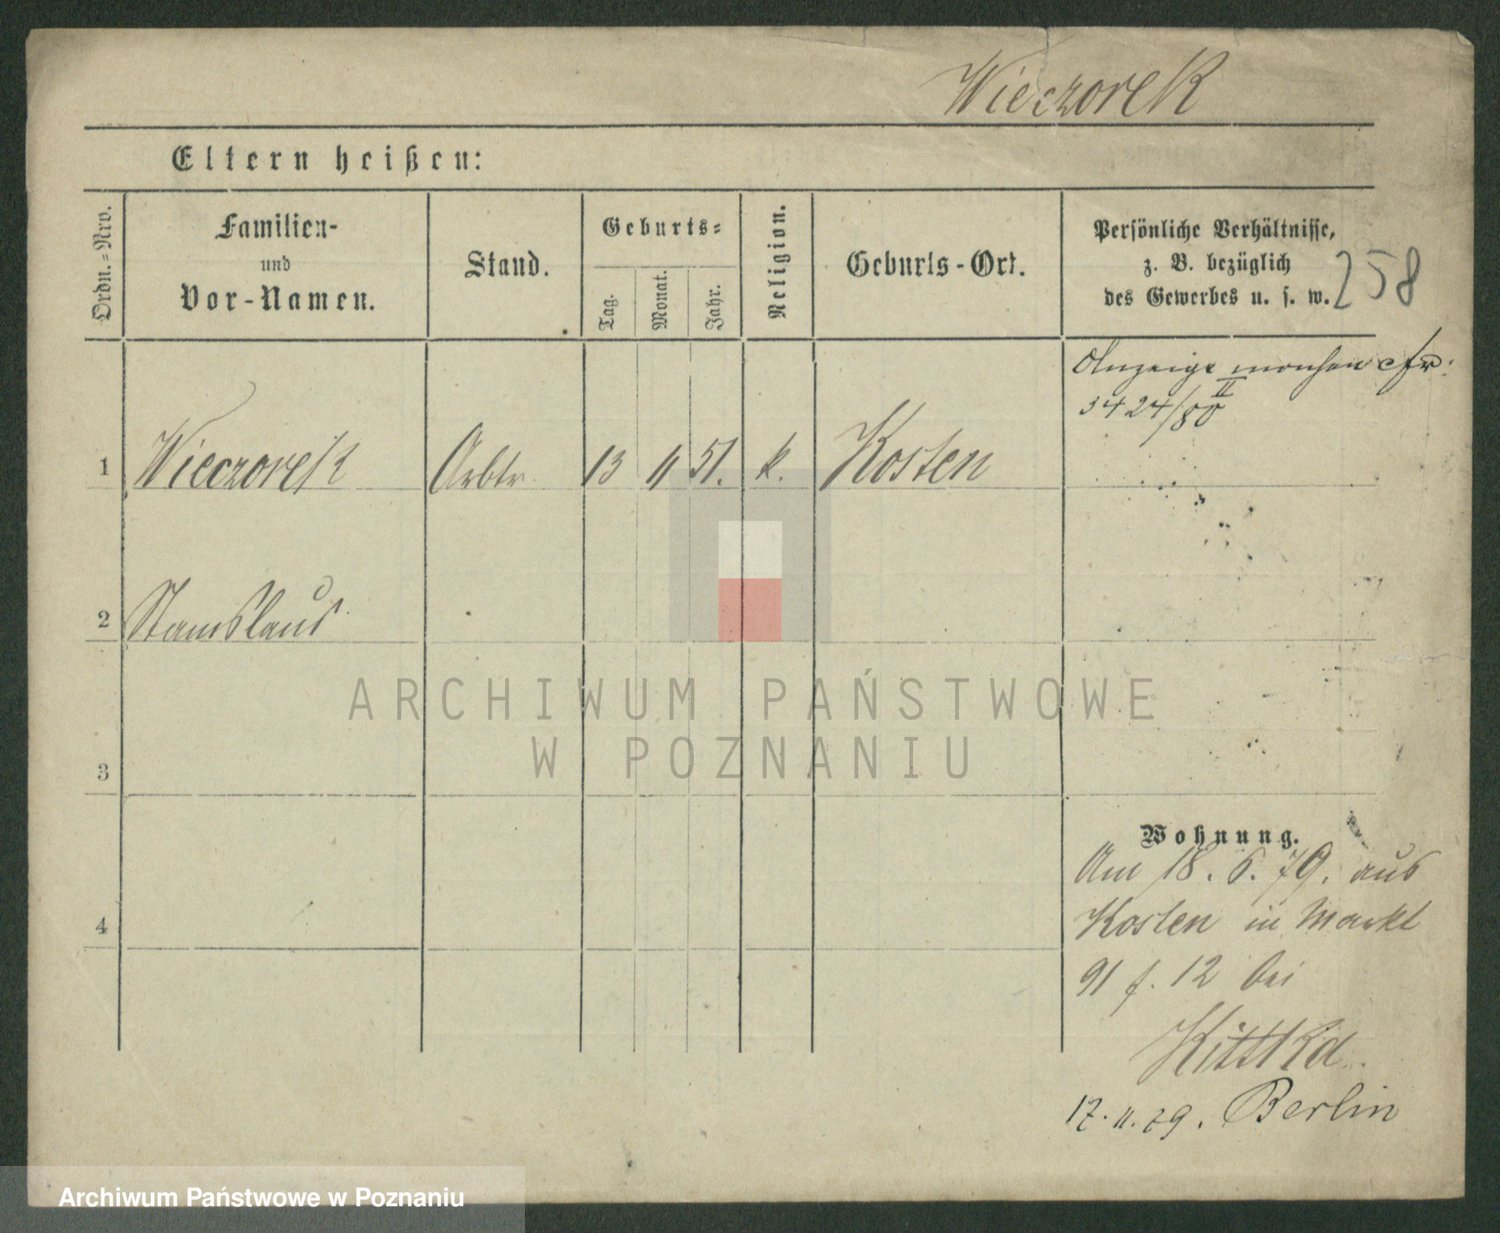 Wieczorek
Eltern heißen:
Ordn.-Nro.
Familien-
und
Vor-Namen.
Stand.
Geburts-
Tag.
Monat.
Jahr.
Religion.
Geburts-Ort.
Persönliche Verhältnisse,
z. B. bezüglich
des Gewerbes u. s. w.
258
Anzeige cfr.
3424/80 II
1 Wieczorek Arbtr. 13 11 51. k. Kosten
2 Stanislaus
3
4
Wohnung.
Am 18. 6. 79. aus
Kosten in Markt
91 f. 12 bei
Kittka
17. 11. 79. Berlin
ARCHIWUM PAŃSTWOWE
W POZNANIU
Archiwum Państwowe w Poznaniu